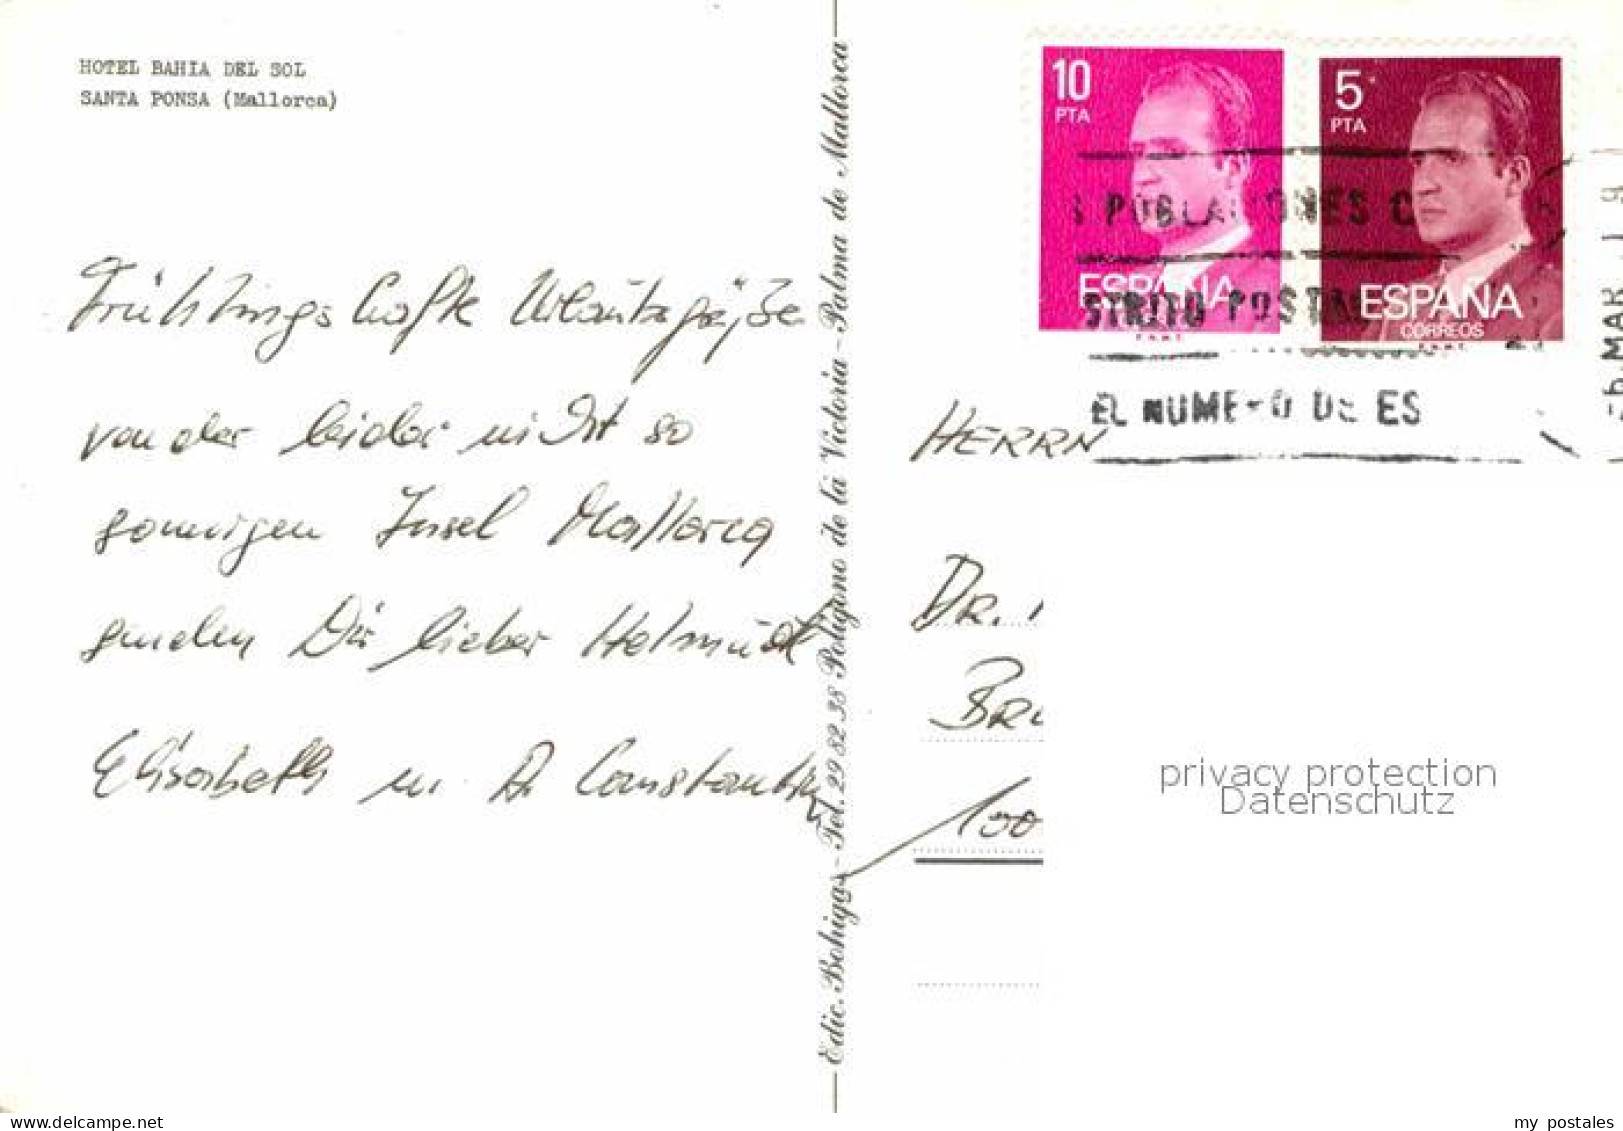 HOTEL BAHIA DEL SOL
SANTA PONSA (Mallorca)
Frühlingshafte Urlaubsgrüße
von der leider nicht so
sonnigen Insel Mallorca
senden Dir lieber Helmut
Elisabeth u. Constantin
Edic. Bohigas - Tel. 29 82 38 Poligono de la Victoria - Palma de Mallorca
10
PTA
ESPAÑA
5
PTA
ESPAÑA
CORREOS
POBLACIONES
POSTAL
EL NUMERO DE ES
MAR
HERRN
DR.
100
privacy protection
Datenschutz
my postales